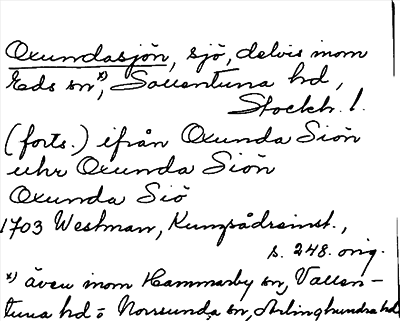 Oxundasjön, sjö, delvis inom
Eds sn x), Sollentuna hd,
Stockh. l.
(forts.) ifrån Oxunda Siön
uhr Oxunda Siön
Oxunda Siö
1703 Westman, Kungsådreinst.,
s. 248. orig.
x) även inom Hammarby sn, Vallen-
tuna hd o Norrsunda sn, Ärlinghundra hd